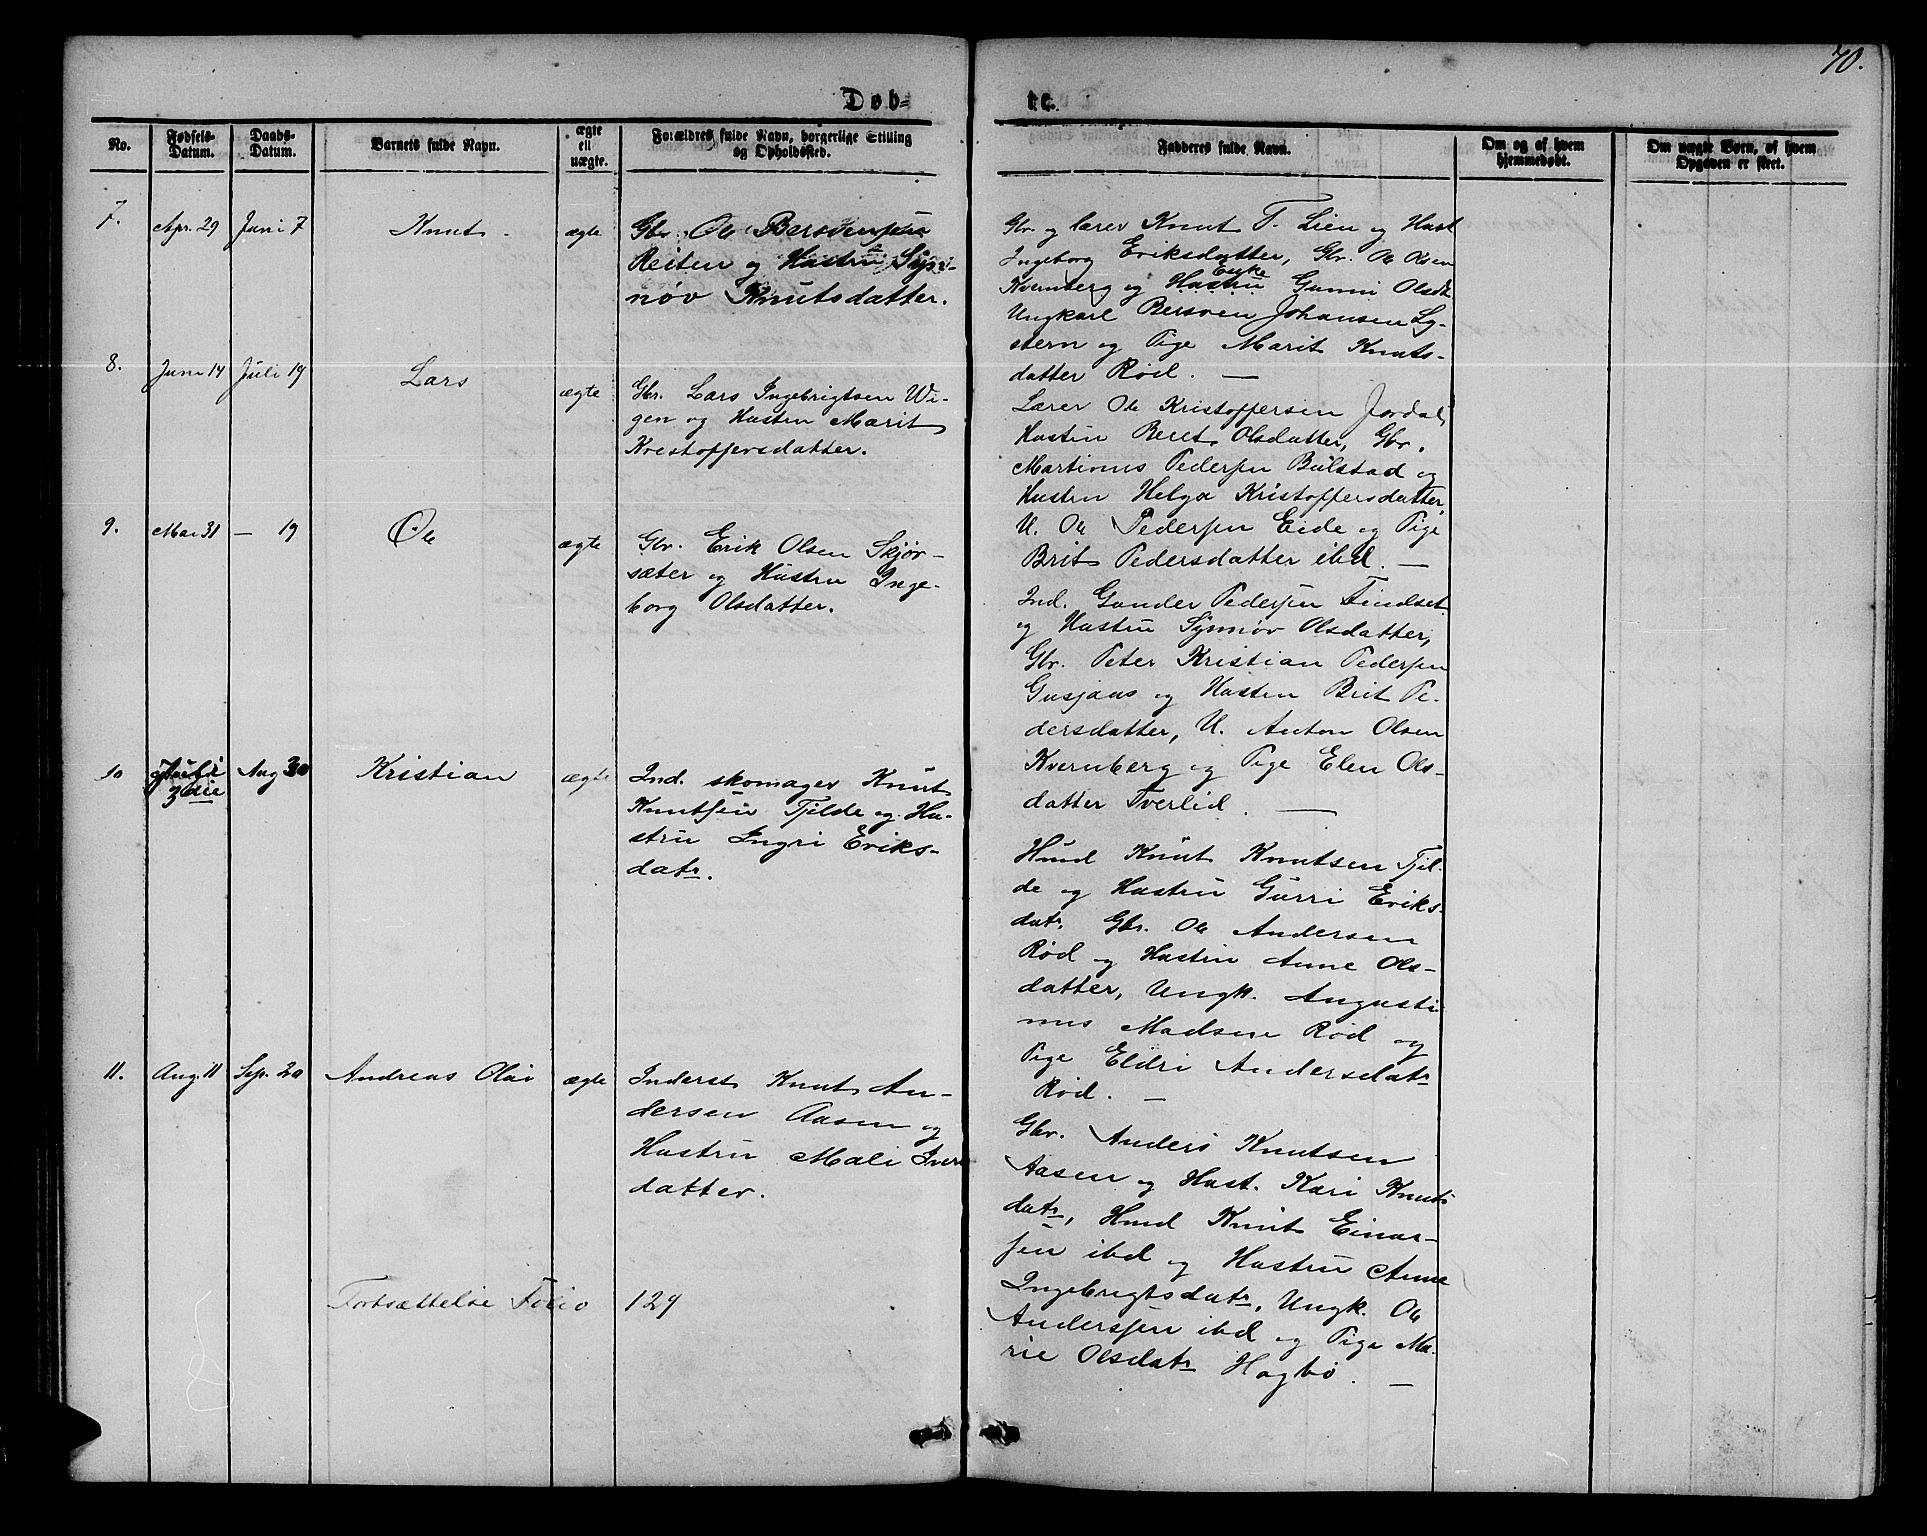 70.
Døb-
te.
No.
Fødsels-
Datum.
Daabs-
Datum.
Barnets fulde Navn.
ægte
ell
uægte.
Forældres fulde Navn, borgerlige Stilling
og Opholdssted.
Fadderes fulde Navn.
Om og af hvem
hjemmedøbt.
Om uægte Børn, af hvem
Opgaven er skeet.
7.
Apr. 29
Juni 7
Knut
ægte
Gbr. Ole Bersvensen
Reiten og Hustru Syn-
nøv Knutsdatter.
Gbr. og lærer Knut T. Lien og Hust
Ingeborg Eriksdatter, Gbr. Ole Olsen
Enke
Kvernberg og Hustru Gunni Olsdt
Ungkarl Bersven Johansen Ly-
stern og Pige Marit Knuts-
datter Rød. —
8.
Juni 14
Juli 19
Lars
ægte
Gbr. Lars Ingebrigtsen Wi-
gen og Hustru Marit
Krestoffersdatter.
Lærer Ole Kristoffersen Jordal
Hustru Beret Olsdatter, Gbr.
Martinus Pedersen Bølstad og
Hustru Helga Kristoffersdatter,
U. Ole Pedersen Eide og Pige
Brit Pedersdatter ibd. —
9.
Mai 31
— 19
Ole
ægte
Gbr. Erik Olsen Skjør-
sæter og Hustru Inge-
borg Olsdatter.
Ind. Gunder Pedersen Findset
og Hustru Synnøv Olsdatter,
Gbr. Peter Kristian Pedersen
Gusjaas og Hustru Brit Pe-
dersdatter, U. Anton Olsen
Kvernberg og Pige Elen Ols-
datter Tverlid. —
10
Juli
3die
Aug 30
Kristian
ægte
Ind. skomager Knut
Knutsen Tjelde og Hu-
stru Ingri Eriks-
datr.
Hmd Knut Knutsen Tjel-
de og Hustru Gurri Eriks-
datr. Gbr. Ole Andersen
Rød og Hustru Anne Ols-
datter, Ungk. Augusti
nus Madsen Rød og
Pige Eldri Andersdatr
Rød. —
11.
Aug. 11
Sep. 20
Andreas Olai
ægte
Inderst Knut An-
dersen Aasen og
Hustru Mali Ivers
datter.
Gbr. Anders Knutsen
Aasen og Hust. Kari Knuts
datr, Hmd Knut Einar-
sen ibd og Hustru Anne
Ingebrigtsdatr, Ungk. Ole
Andersen ibd og Pige Ma-
rie Olsdatr Hagbø. —
Fortsættelse Folio 129